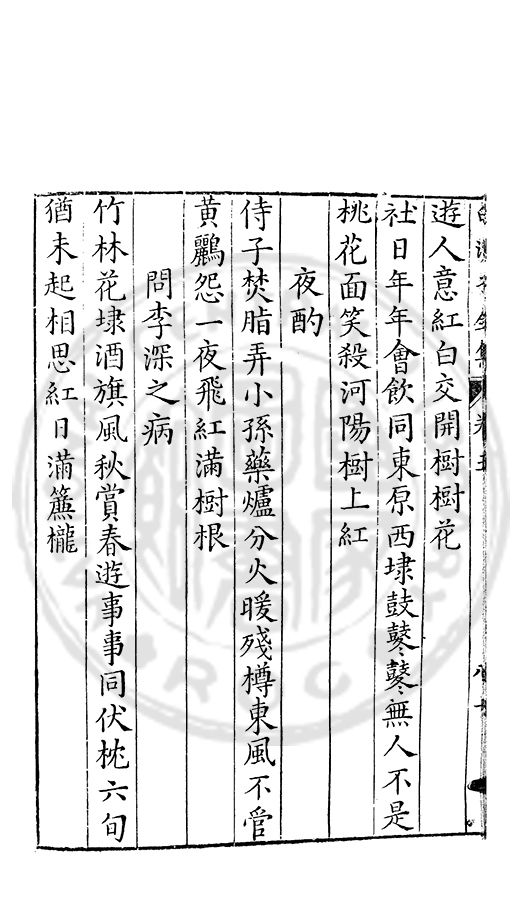 遊人意紅白交開樹樹花
社日年年會飲同東原西埭鼓鼕鼕無人不是
桃花面笑殺河陽樹上紅
夜酌
侍子焚脂弄小孫藥爐分火暖殘樽東風不管
黃鸝怨一夜飛紅滿樹根
問李深之病
竹林花埭酒旗風秋賞春遊事事同伏枕六旬
猶未起相思紅日滿簾櫳